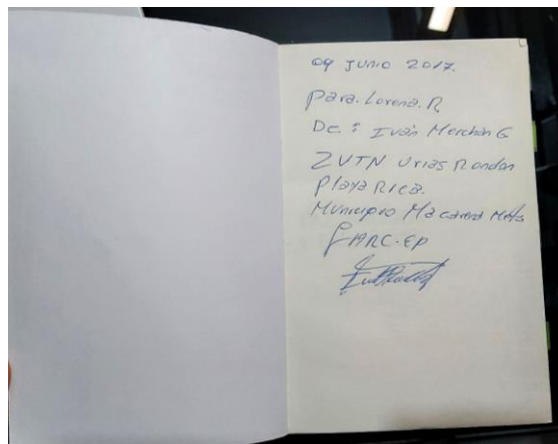 09 JUNIO 2017.
Para. Lorena. R
De : Iván Merchan G
ZVTN Urias Rondon
Playa Rica.
Municipio Macarena Meta
FARC-EP